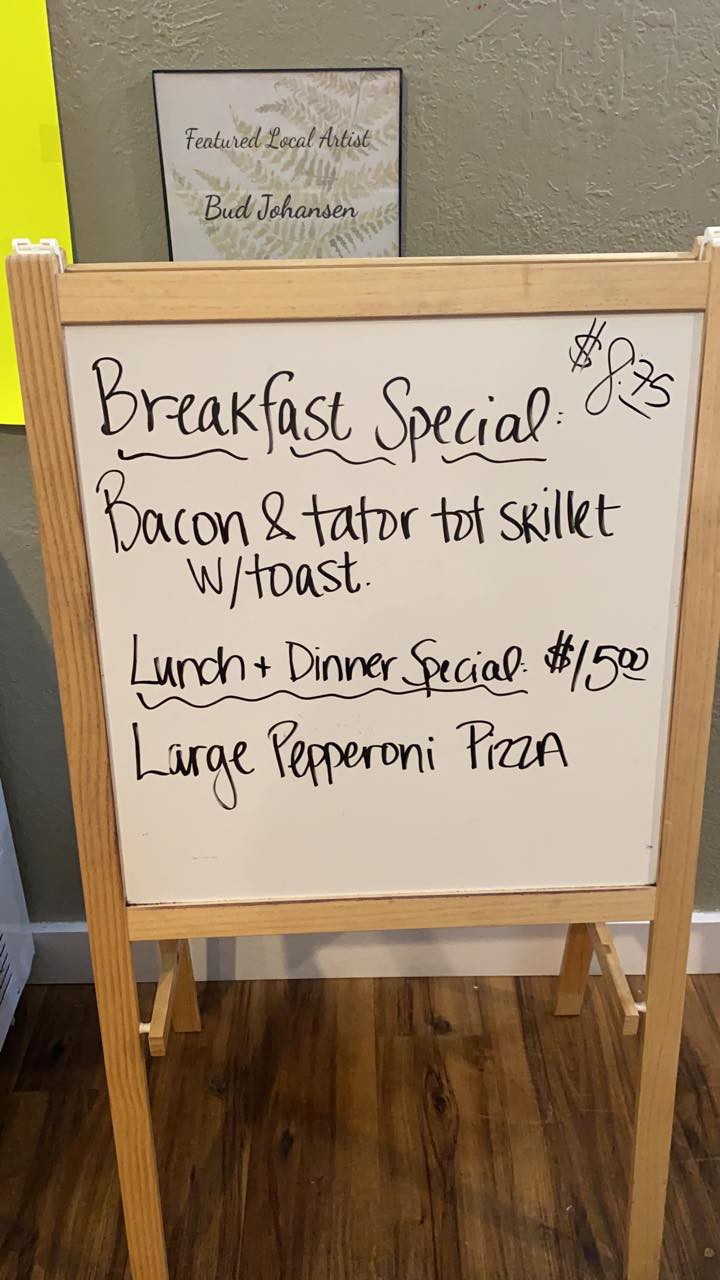 Featured Local Artist
Bud Johansen
Breakfast Special: $8.75
Bacon & tator tot skillet
w/toast.
Lunch + Dinner Special: $15.00
Large Pepperoni Pizza